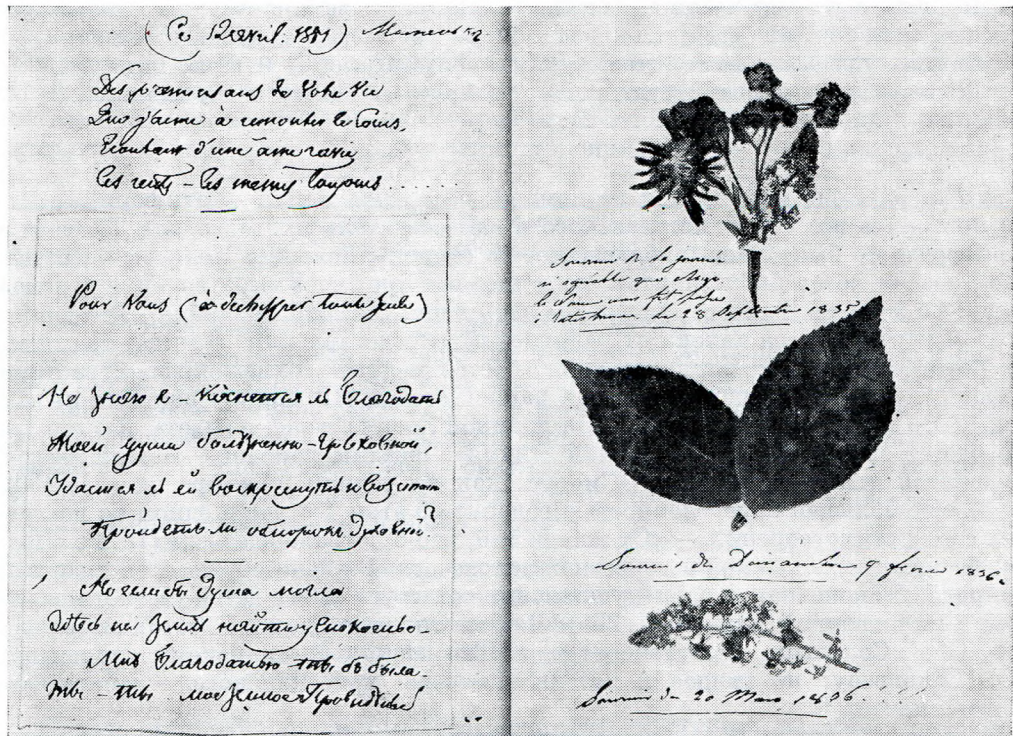 (Ce 12 avril. 1851)
Des premiers ans de Votre Vie
Que j'aime à remonter le Cours,
Ecoutant d'une âme ravie
Ces récits – les mêmes toujours.....
Pour Vous (à déchiffrer toute seule)
Не знаю я – коснется ль Благодать
Моей души болѣзненно-грѣховной,
Удастся ль ей воскреснуть и возстать
Пройдетъ ли обморокъ духовной?
Но если бы душа могла
Здѣсь на землѣ найти успокоенье –
Мнѣ благодатью ты бъ была –
ты – ты мое земное Провидѣнье!
Souvenir de la journée
si agréable que
nous fit passer
à Ratisbonne. Le 28 Septembre 1835
Souvenir du Dimanche 9 février 1836.
Souvenir du 20 Mars 1836. ! ! !